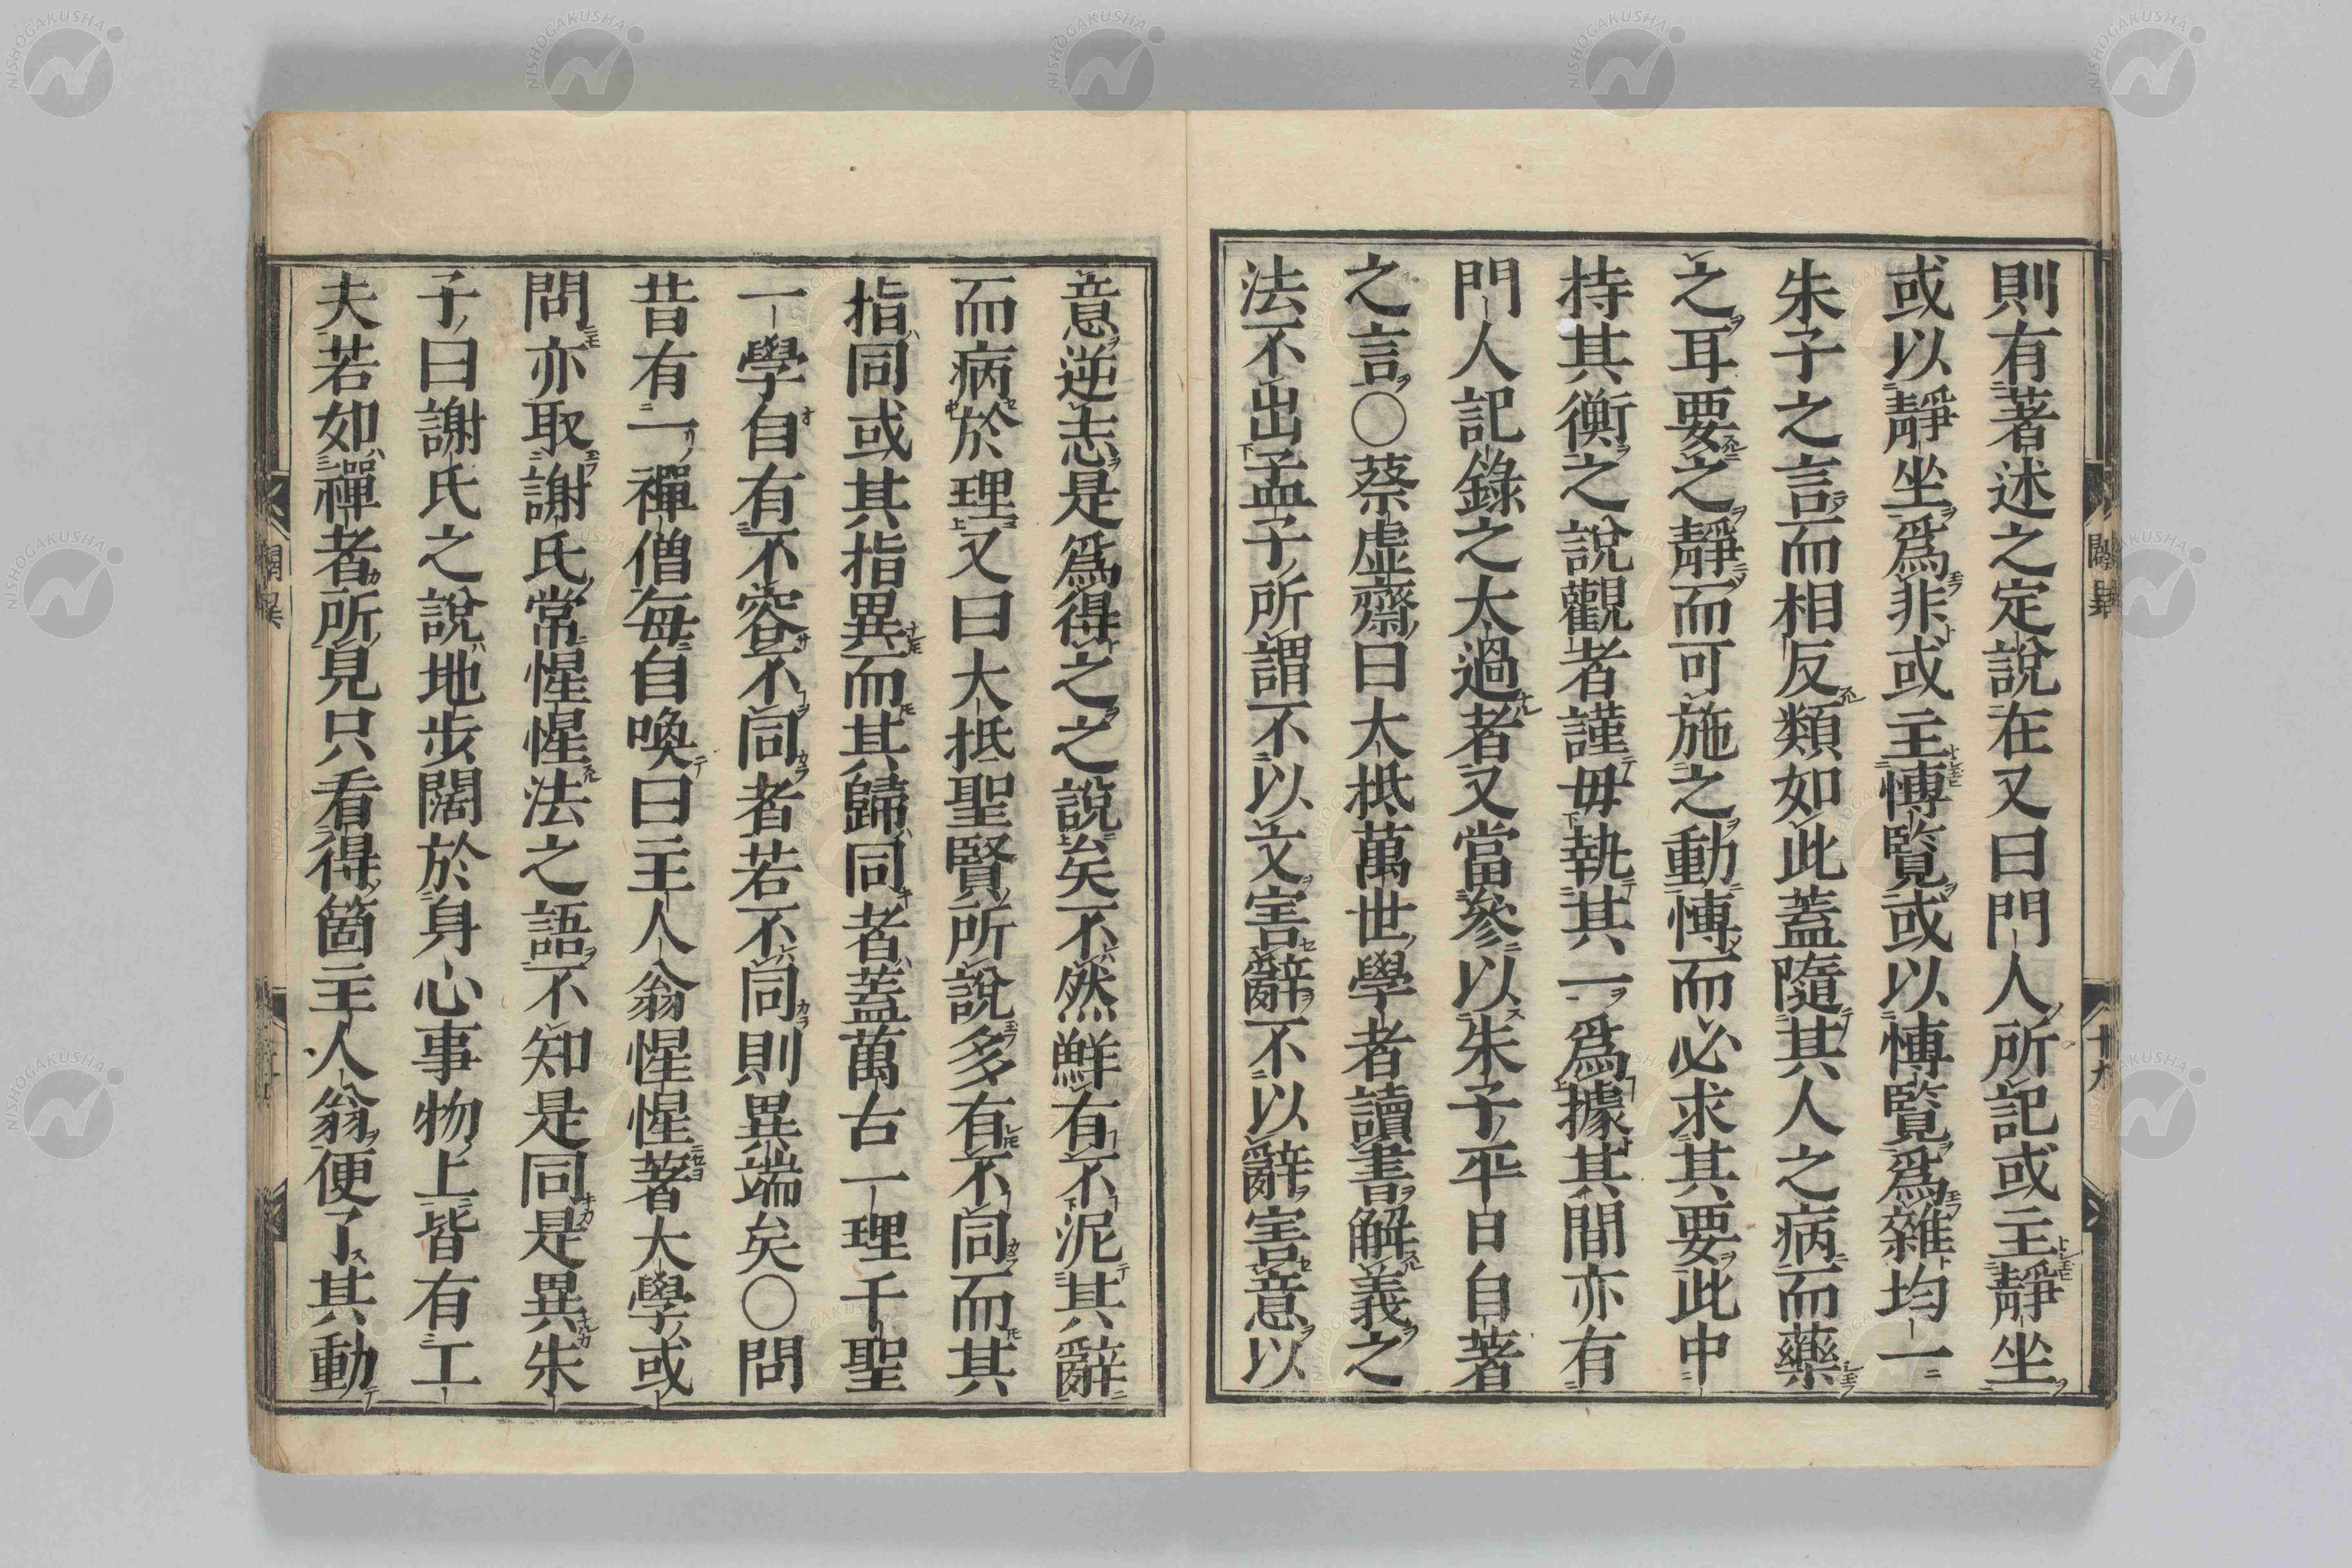 則有著述之定說在又曰門人所記或主靜坐
或以靜坐爲非或主博覽或以博覽爲雜均一
朱子之言而相反類如此蓋隨其人之病而藥
之耳要之靜而可施之動博而必求其要此中
持其衡之說觀者謹毋執其一爲據其間亦有
門人記錄之太過者又當參以朱子平日自著
之言〇蔡虛齋曰大抵萬世學者讀書解義之
法不出孟子所謂不以文害辭不以辭害意以
意逆志是爲得之之說矣不然鮮有不泥其辭
而病於理又曰大抵聖賢所說多有不同而其
指同或其指異而其歸同者蓋萬古一理千聖
一學自有不容不同者若不同則異端矣〇問
昔有一禪僧每自喚曰主人翁惺惺著大學或
問亦取謝氏常惺惺法之語不知是同是異朱
子曰謝氏之說地步闊於身心事物上皆有工
夫若如禪者所見只看得箇主人翁便了其動
闢異
廿九
NISHOGAKUSHA